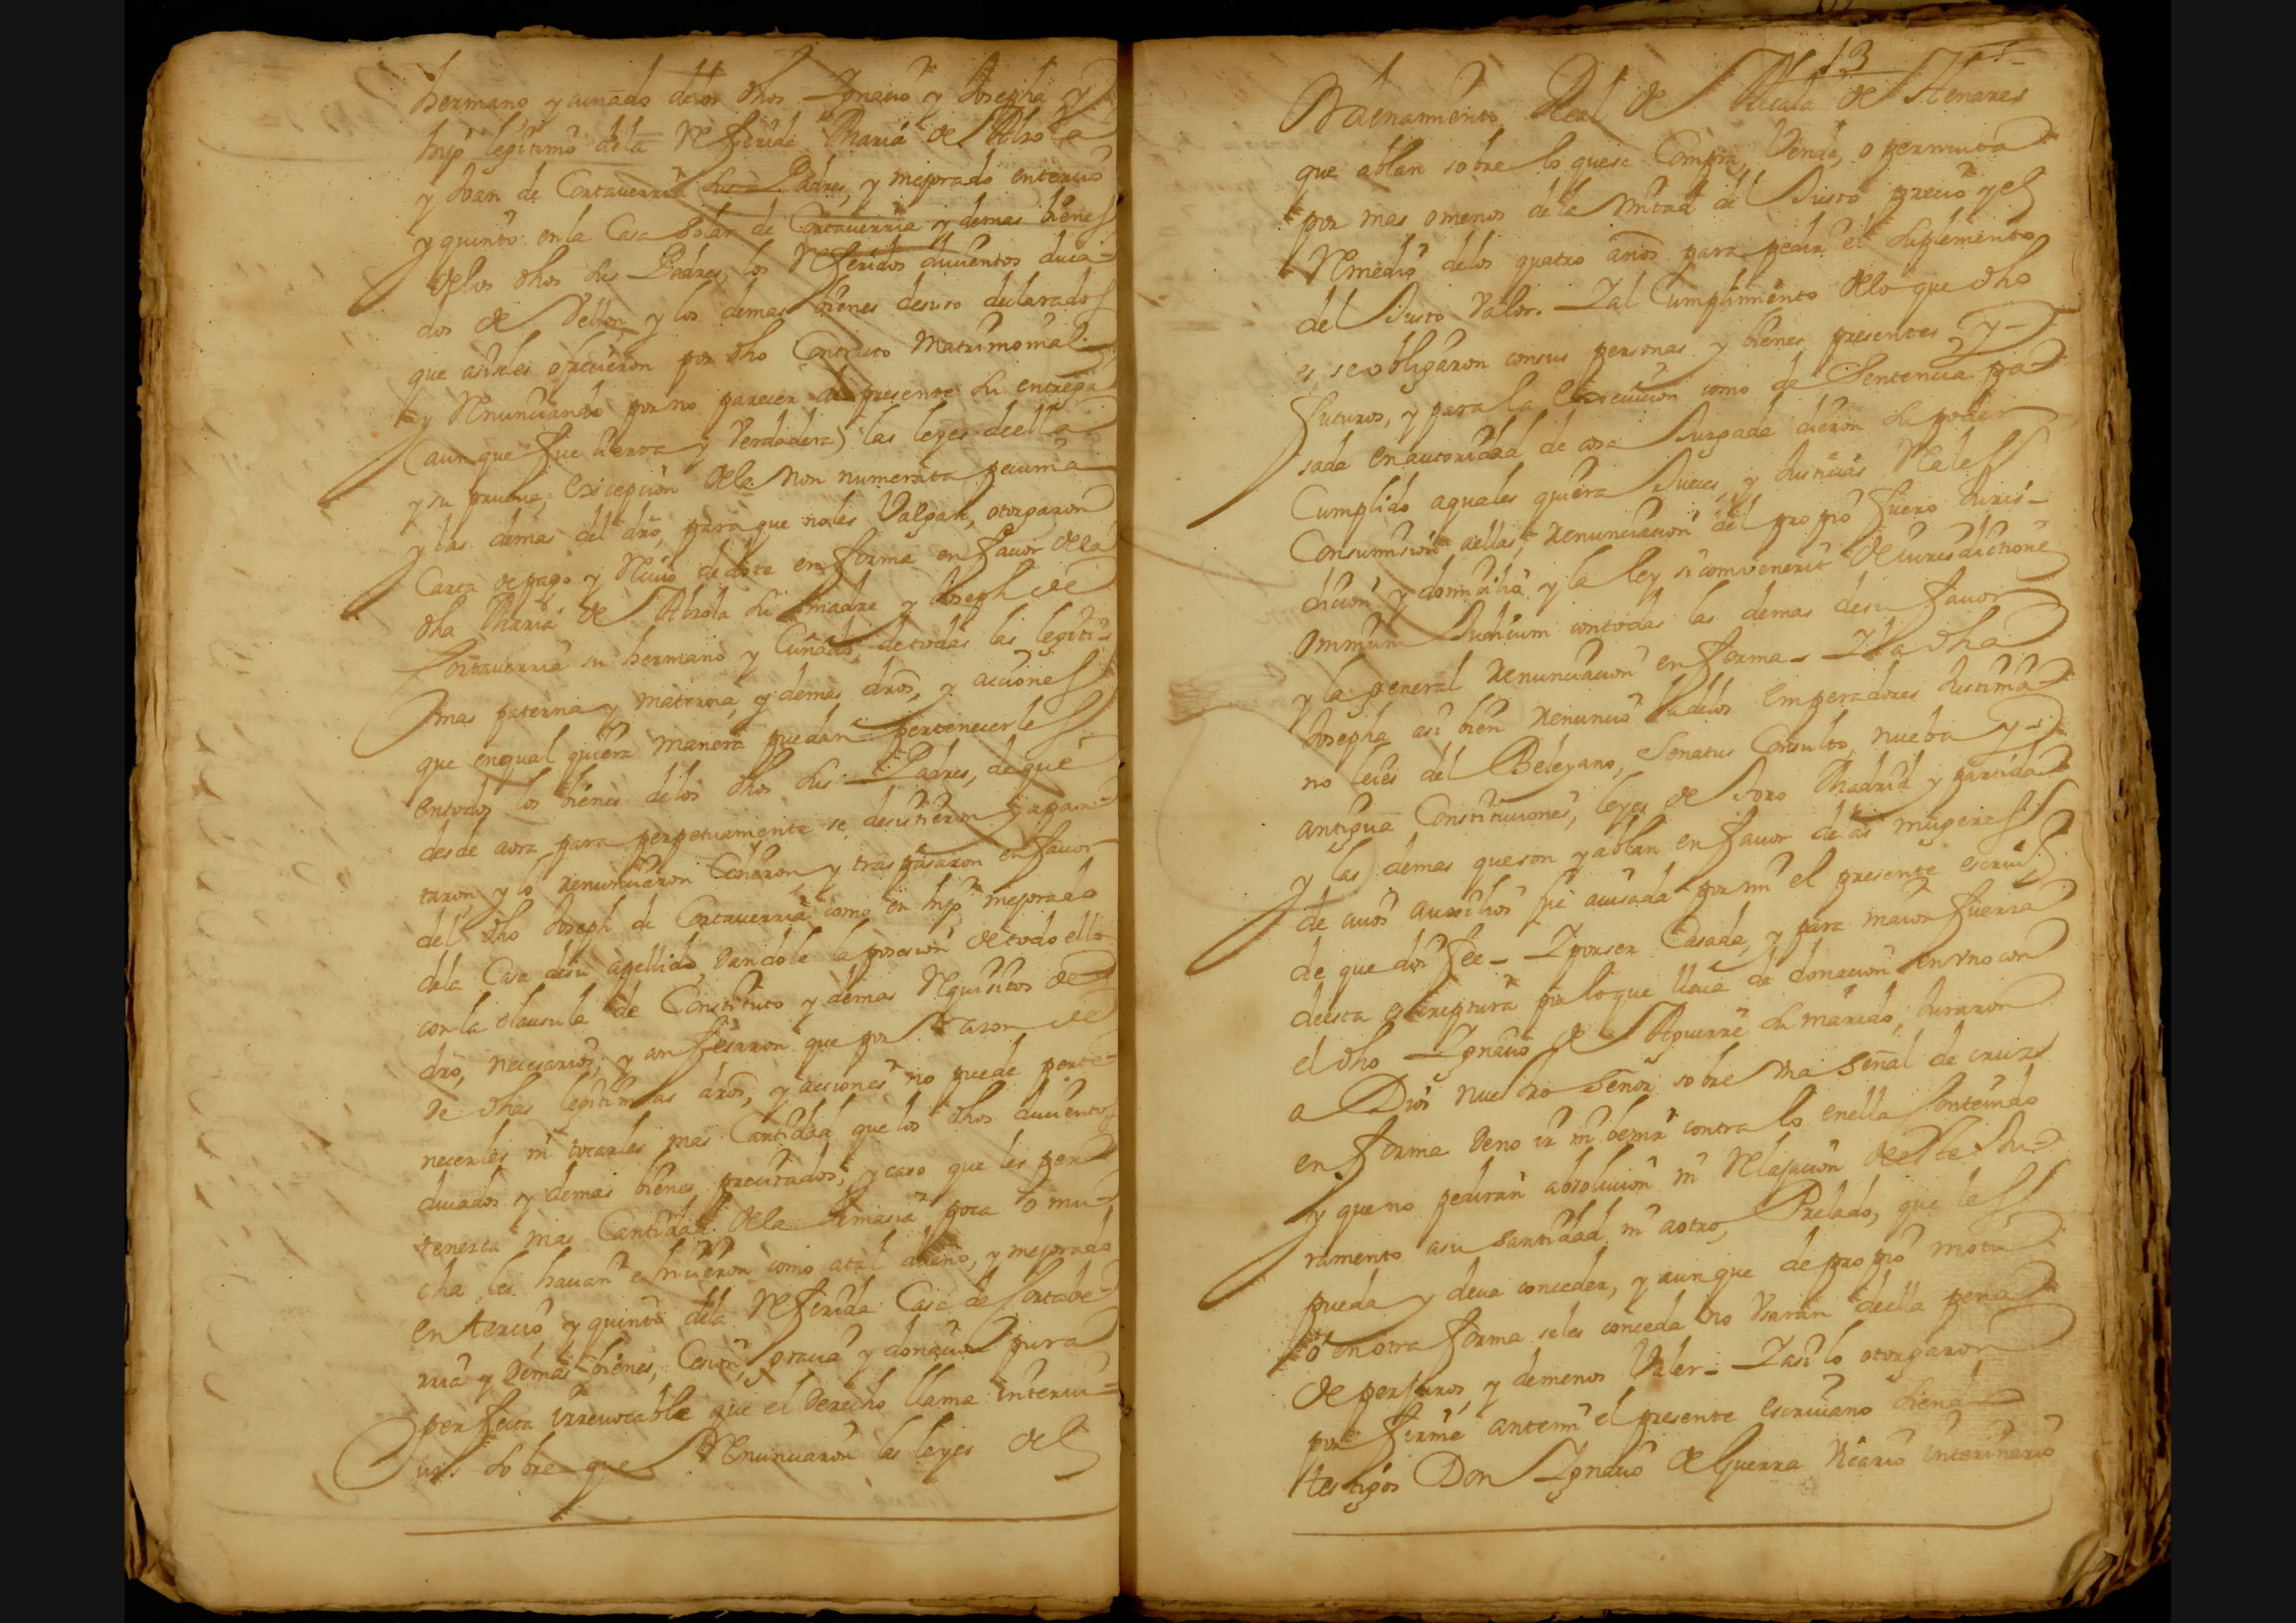 hermano y cuñado delos dhos Ignacio y Josepha y
hijo legitimo dela Referida Maria de Alzola
y Joan de Cortaverria sus Padres, y mejorado entercio
y quinto en la Casa Solar de Cortaverria y demas bienes
delos dhos sus Padres, los Referidos ducientos duca-
dos de Vellon y los demas bienes desuso declarados
que asi les ofrecieron por dho Contrato Matrimonial
y Renunciando por no parecer de presente su entrega
(aunque fue cierta y Verdadera) las leyes de ella
y su prueba, excepcion dela Non numerata pecunia
y las demas del dro, para que no les Valgan, otorgaron
Carta de pago y Recivo de dote en forma en favor dela
dha Maria de Alzola su Madre y Joseph de
Cortaverria su hermano y Cuñado, de todas las legiti-
mas paterna y materna, y demas dros, y acciones
que en qual quiera manera puedan pertenecerles
entodos los bienes delos dhos sus Padres, de que
desde aora para perpetuamente se desistieron y apar-
taron, y lo renunciaron Cedieron y traspasaron en favor
del dho Joseph de Cortaverria como en hijo mejorado
dela Casa desu apellido, dandole la posesion de todo ello
con la clausula de Constituto y demas Requisitos de
dro, necesarios; y confesaron que por razon de
de dhas legitimas dros, y acciones no puede perte-
necerles ni tocarles mas Cantidad que los dhos ducientos
ducados y demas bienes precitados; y caso que les per-
tenezca mas Cantidad dela demasia poca o mu-
cha les hacian e hicieron como atal dueño, y mejorado
en tercio y quinto dela Referida Casa de Cortabe-
rria y demas bienes, Cesion, gracia y donacion pura
perfecta irrevocable que el Derecho llama intervi-
vos sobre que Renunciaron las leyes del
13
Ordenamiento Real de Alcala de Henares
que ablan sobre lo que se Compra, Vende, o permuta
por mas o menos dela Mitad del Justo precio y el
Remedio delos quatro años para pedir el suplemento
del Justo Valor. I al Cumplimiento delo que dho
es, se obligaron consus personas y bienes presentes y
futuros, y para la execucion como de Sentencia pa-
sada en autoridad de cosa Juzgada dieron su poder
Cumplido aquales quiera Jueces, y Justicias Reales
Consumision aellas, renunciacion del propio fuero Juris-
dicion y domicilio y la ley si combenerit de iurisdictione
omnium Judicum contodas las demas desu favor
y la general renunciacion en forma - I la dha
Josepha asi bien renuncio la delos Emperadores Justinia-
no leies del Beleyano, Senatus Consulto, nueba y
antigua Constituciones, leyes de Toro Madrid y partida
y las demas que son y ablan en favor delas mugeres
de cuios auxilios fue avisada por mi el presente escrivo
de que doi fee - I por ser Casada, y para maior fuerza
deesta escriptura por loque lleva de donacion enuno con
el dho Ignacio de Aguirre su marido, Juraron
a Dios nuestro Señor sobre Una Señal de cruz
en forma deno ir ni benir contra lo enella Contenido
y que no pediran absolucion ni Relajacion deeste Ju-
ramento asu Santidad ni aotro, Prelado, que les
pueda y deva conceder, y aunque de propio motu
o en otra forma seles conceda no Usaran deella pena
de perjuros, y demenos Valer - I asi lo otorgaron
por firme antemi el presente escrivano siendo
testigos Don Ignacio de Guerra Vicario interinario